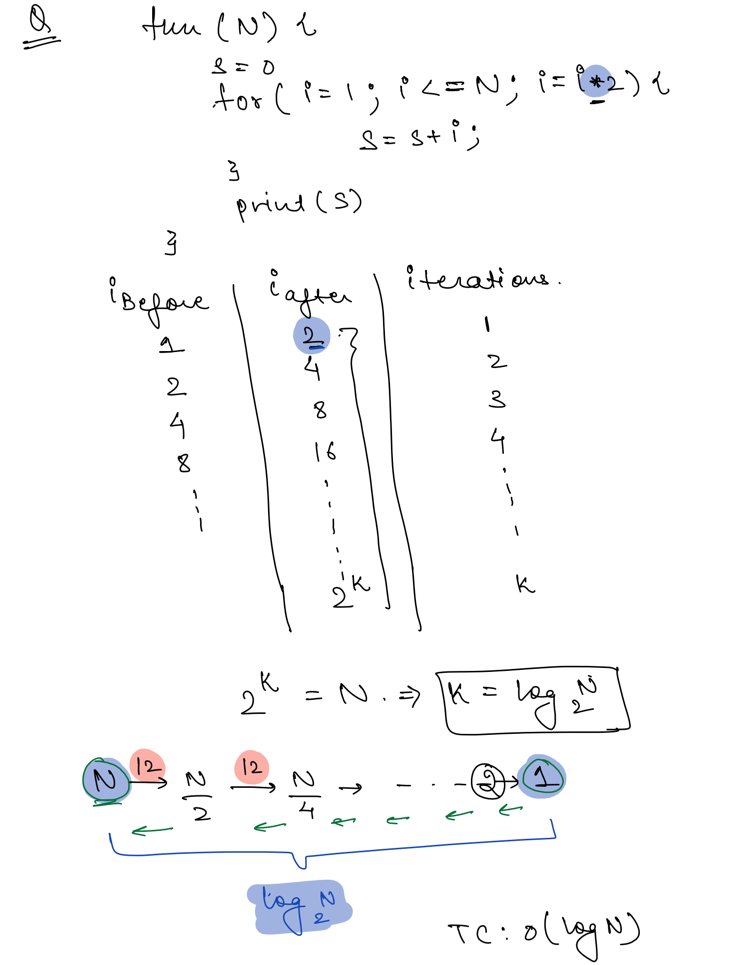 Q fun (N) {
s = 0
for( i = 1 ; i <= N ; i = i * 2) {
s = s + i ;
}
print(s)
}
i Before i after iterations.
1 2 1
2 4 2
4 8 3
8 16 4
2^K K
2^K = N. ⇒ K = log₂ N
N /2 → N/2 /2 → N/4 → - . - - 2 → 1
log₂ N
TC : O(log N)